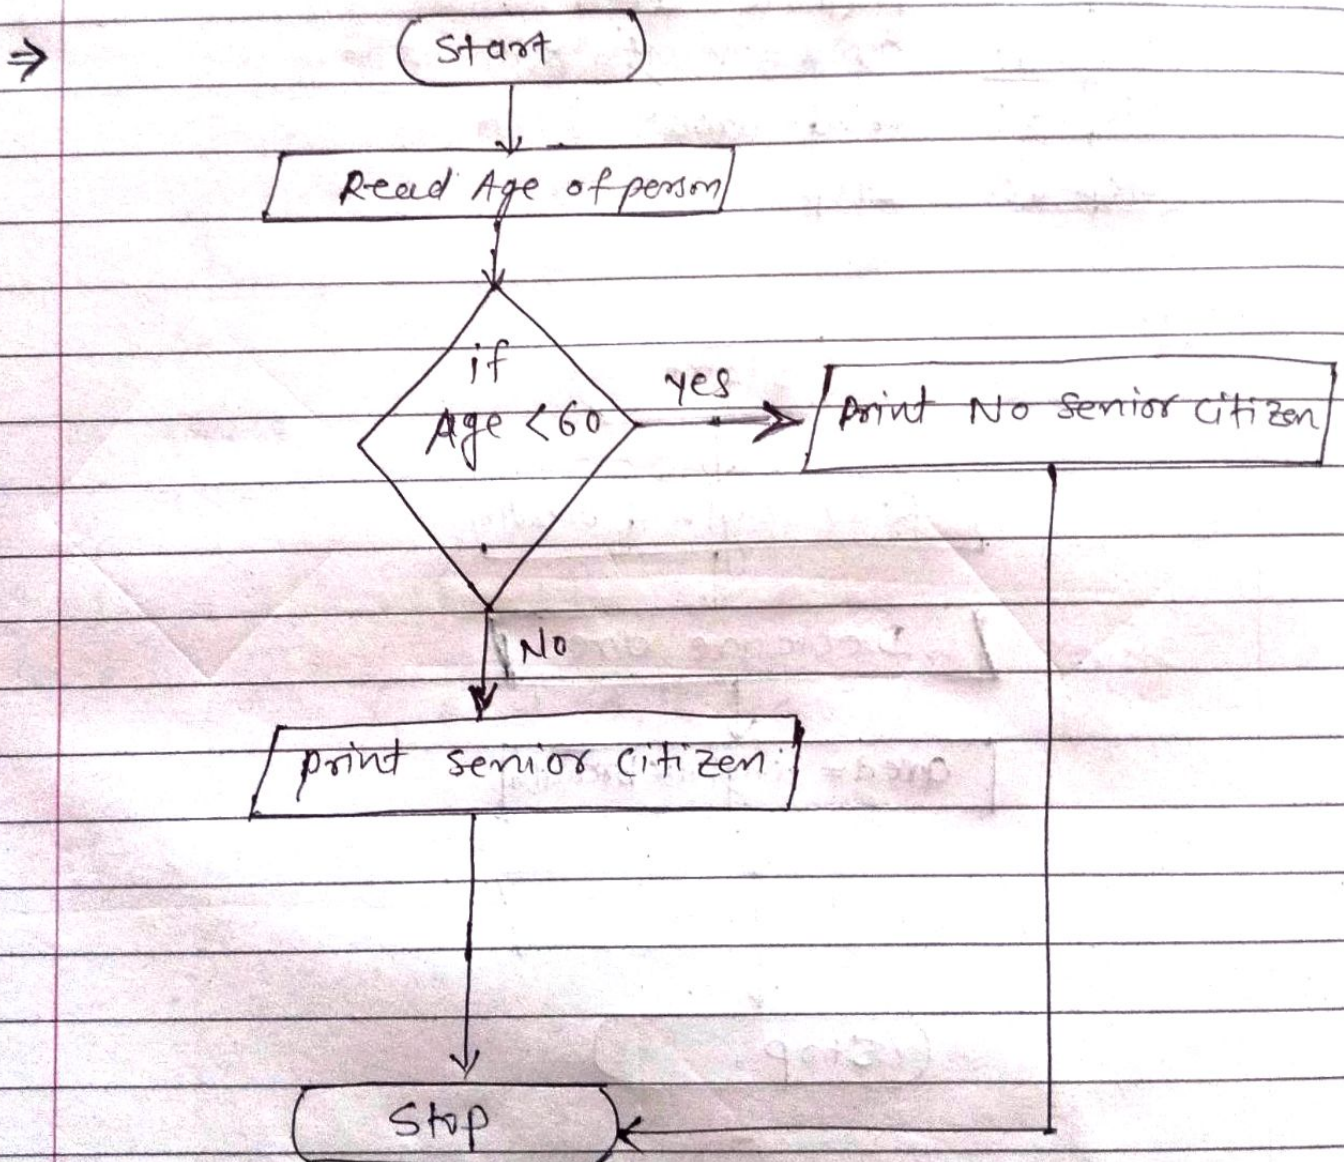 ⇒
Start
Read Age of person
if
Age <60
yes
print No Senior citizen
No
print senior citizen.
Stop